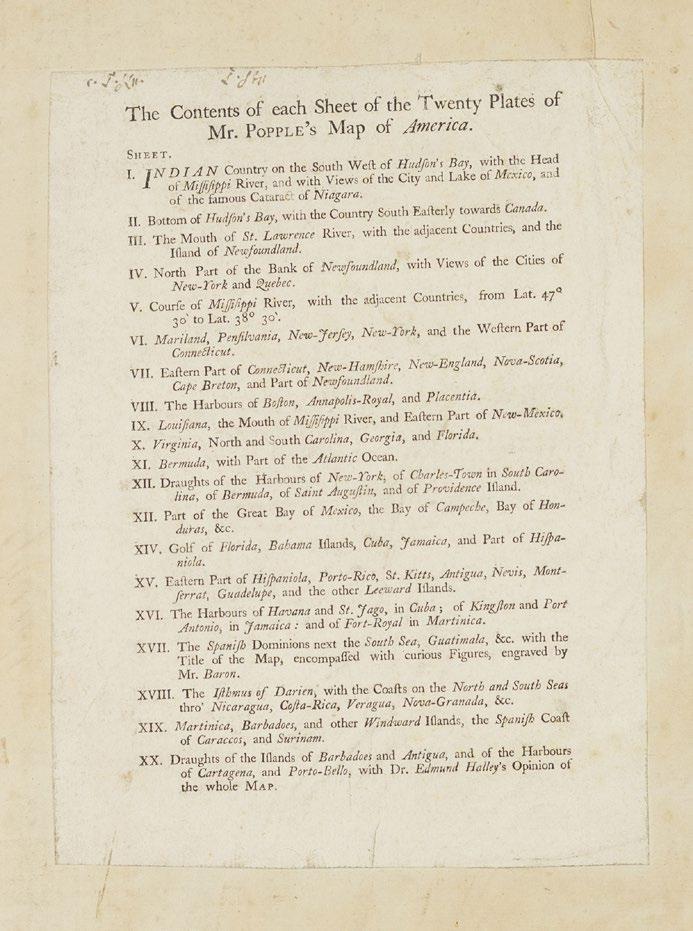 The Contents of each Sheet of the Twenty Plates of
Mr. POPPLE's Map of America.
SHEET.
I. INDIAN Country on the South Weſt of Hudſon's Bay, with the Head
of Miſſiſippi River, and with Views of the City and Lake of Mexico, and
of the famous Cataract of Niagara.
II. Bottom of Hudſon's Bay, with the Country South Eaſterly towards Canada.
III. The Mouth of St. Lawrence River, with the adjacent Countries, and the
Iſland of Newfoundland.
IV. North Part of the Bank of Newfoundland, with Views of the Cities of
New-York and Quebec.
V. Courſe of Miſſiſippi River, with the adjacent Countries, from Lat. 47°
30' to Lat. 38° 30'.
VI. Mariland, Penſilvania, New-Jerſey, New-York, and the Weſtern Part of
Connecticut.
VII. Eaſtern Part of Connecticut, New-Hamſhire, New-England, Nova-Scotia,
Cape Breton, and Part of Newfoundland.
VIII. The Harbours of Boſton, Annapolis-Royal, and Placentia.
IX. Louiſiana, the Mouth of Miſſiſippi River, and Eaſtern Part of New-Mexico.
X. Virginia, North and South Carolina, Georgia, and Florida.
XI. Bermuda, with Part of the Atlantic Ocean.
XII. Draughts of the Harbours of New-York, of Charles-Town in South Caro-
lina, of Bermuda, of Saint Auguſtin, and of Providence Iſland.
XII. Part of the Great Bay of Mexico, the Bay of Campeche, Bay of Hon-
duras, &c.
XIV. Golf of Florida, Bahama Iſlands, Cuba, Jamaica, and Part of Hiſpa-
niola.
XV. Eaſtern Part of Hiſpaniola, Porto-Rico, St. Kitts, Antigua, Nevis, Mont-
ſerrat, Guadelupe, and the other Leeward Iſlands.
XVI. The Harbours of Havana and St. Jago, in Cuba; of Kingſton and Port
Antonio, in Jamaica: and of Fort-Royal in Martinica.
XVII. The Spaniſh Dominions next the South Sea, Guatimala, &c. with the
Title of the Map, encompaſſed with curious Figures, engraved by
Mr. Baron.
XVIII. The Iſthmus of Darien, with the Coaſts on the North and South Seas
thro' Nicaragua, Coſta-Rica, Veragua, Nova-Granada, &c.
XIX. Martinica, Barbadoes, and other Windward Iſlands, the Spaniſh Coaſt
of Caraccos, and Surinam.
XX. Draughts of the Iſlands of Barbadoes and Antigua, and of the Harbours
of Cartagena, and Porto-Bello, with Dr. Edmund Halley's Opinion of
the whole MAP.